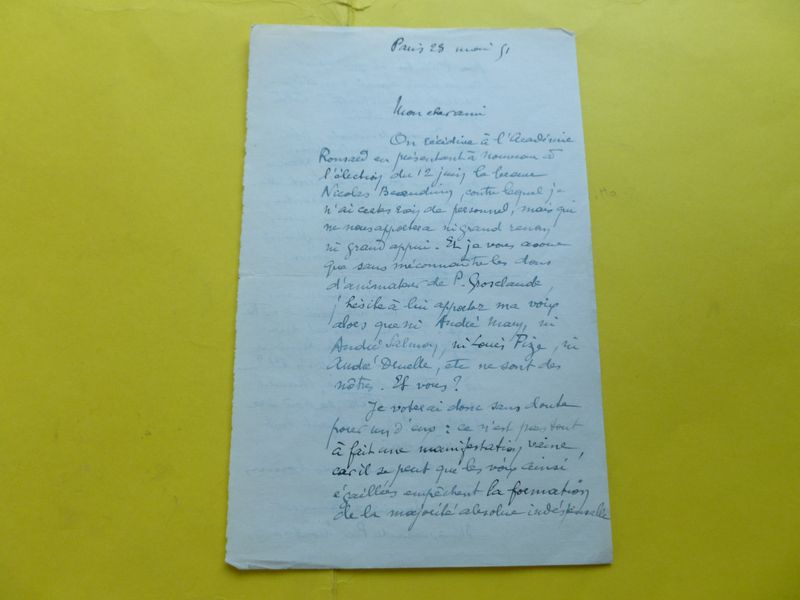 Paris 28 mai 51
Mon cher ami
On récidive à l'Académie
Ronsard en présentant à nouveau à
l'élection du 12 juin le
Nicolas Beauduin, contre lequel je
n'ai certes rien de personnel, mais qui
ne nous apportera ni grand renom
ni grand appui. Et je vous avoue
que sans méconnaître les dons
d'animateur de P. Grosclaude,
j'hésite à lui apporter ma voix
alors que ni André Mary, ni
André Salmon, ni Louis Pize, ni
André Druelle, etc ne sont des
nôtres. Et vous ?
Je voterai donc sans doute
pour un d'eux : ce n'est pas tout
à fait une manifestation vaine,
car il se peut que les voix ainsi
égaillées empêchent la formation
de la majorité absolue indispensable